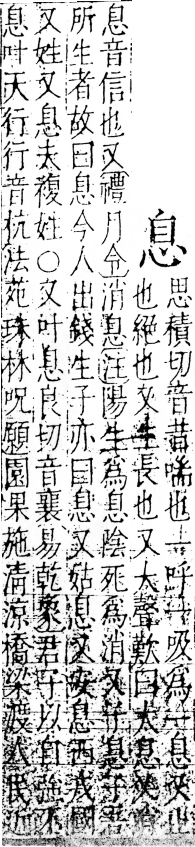 息
思積切音昔喘也一呼一吸爲一息又止
也絶也又生長也又大聲歎曰太息又
息音信也又禮月令消息注陽生爲息陰死爲消又子息子吾
所生者故曰息今人出錢生子亦曰息又姑息又安息西戎國
又姓又息夫複姓○又叶息良切音襄易乾象君子以自強不
息叶天行行音杭法苑珠林呪願園果施清涼橋梁渡人民